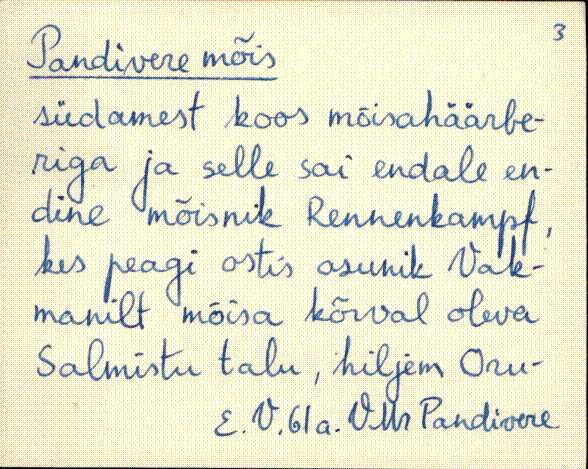 3
Pandivere mõis
südamest koos mõisahäärbe-
riga ja selle sai endale en-
dine mõisnik Rennenkampf,
kes peagi ostis asunik Vak-
manilt mõisa kõrval oleva
Salmistu talu, hiljem Oru-
E. V. 61 a. VMr Pandivere